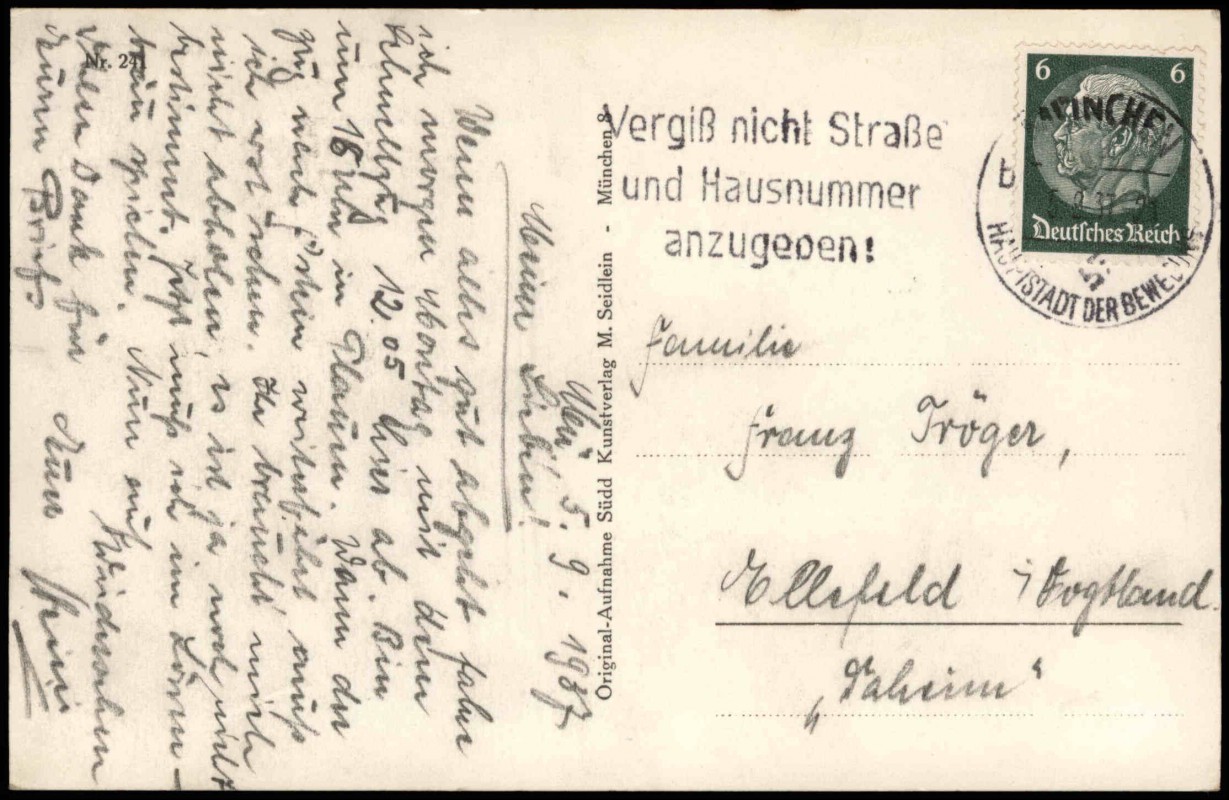 Nr. 241
Mü 5. 9. 1937
Meine Lieben!
Wenn alles gut abgeht fahre
ich morgen Montag mit dem
Schnellzug 12.05 hier ab. Bin
um 18 Uhr in Plauen. Wann der
Zug nach Osten weiterfährt muß
ich erst sehen. Ihr braucht mich
nicht abholen, es ist ja noch nicht
bestimmt. Jetzt muß ich im Löwen-
bräu spielen. Nun auf Wiedersehen
Vielen Dank für Euer
Heini
Original-Aufnahme Südd Kunstverlag M. Seidlein - München 8
Vergiß nicht Straße
und Hausnummer
anzugeben!
6 6
Deutsches Reich
MÜNCHEN
HAUPTSTADT DER BEWEGUNG
Familie
Franz Tröger,
Ellefeld i/Vogtland.
„Daheim"